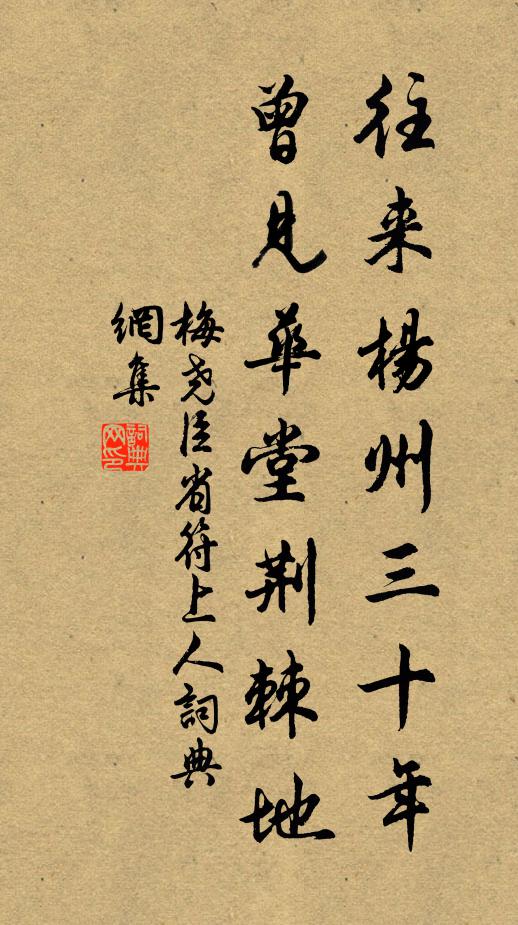 往来楊州三十年
曾見華堂荆棘地
梅尧臣省符上人詞典
網集
詞典網印